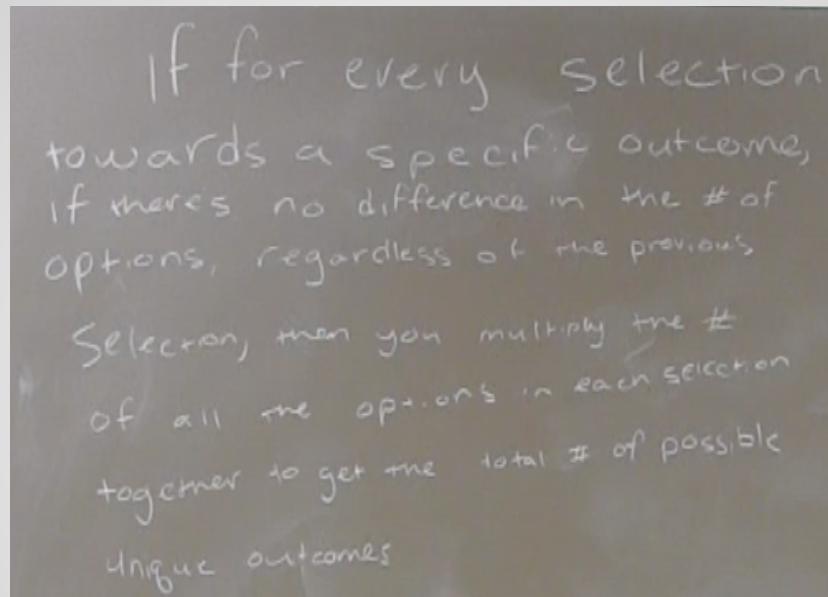 If for every selection
towards a specific outcome,
if theres no difference in the # of
options, regardless of the previous
selection, then you multiply the #
of all the options in each selection
together to get the total # of possible
unique outcomes